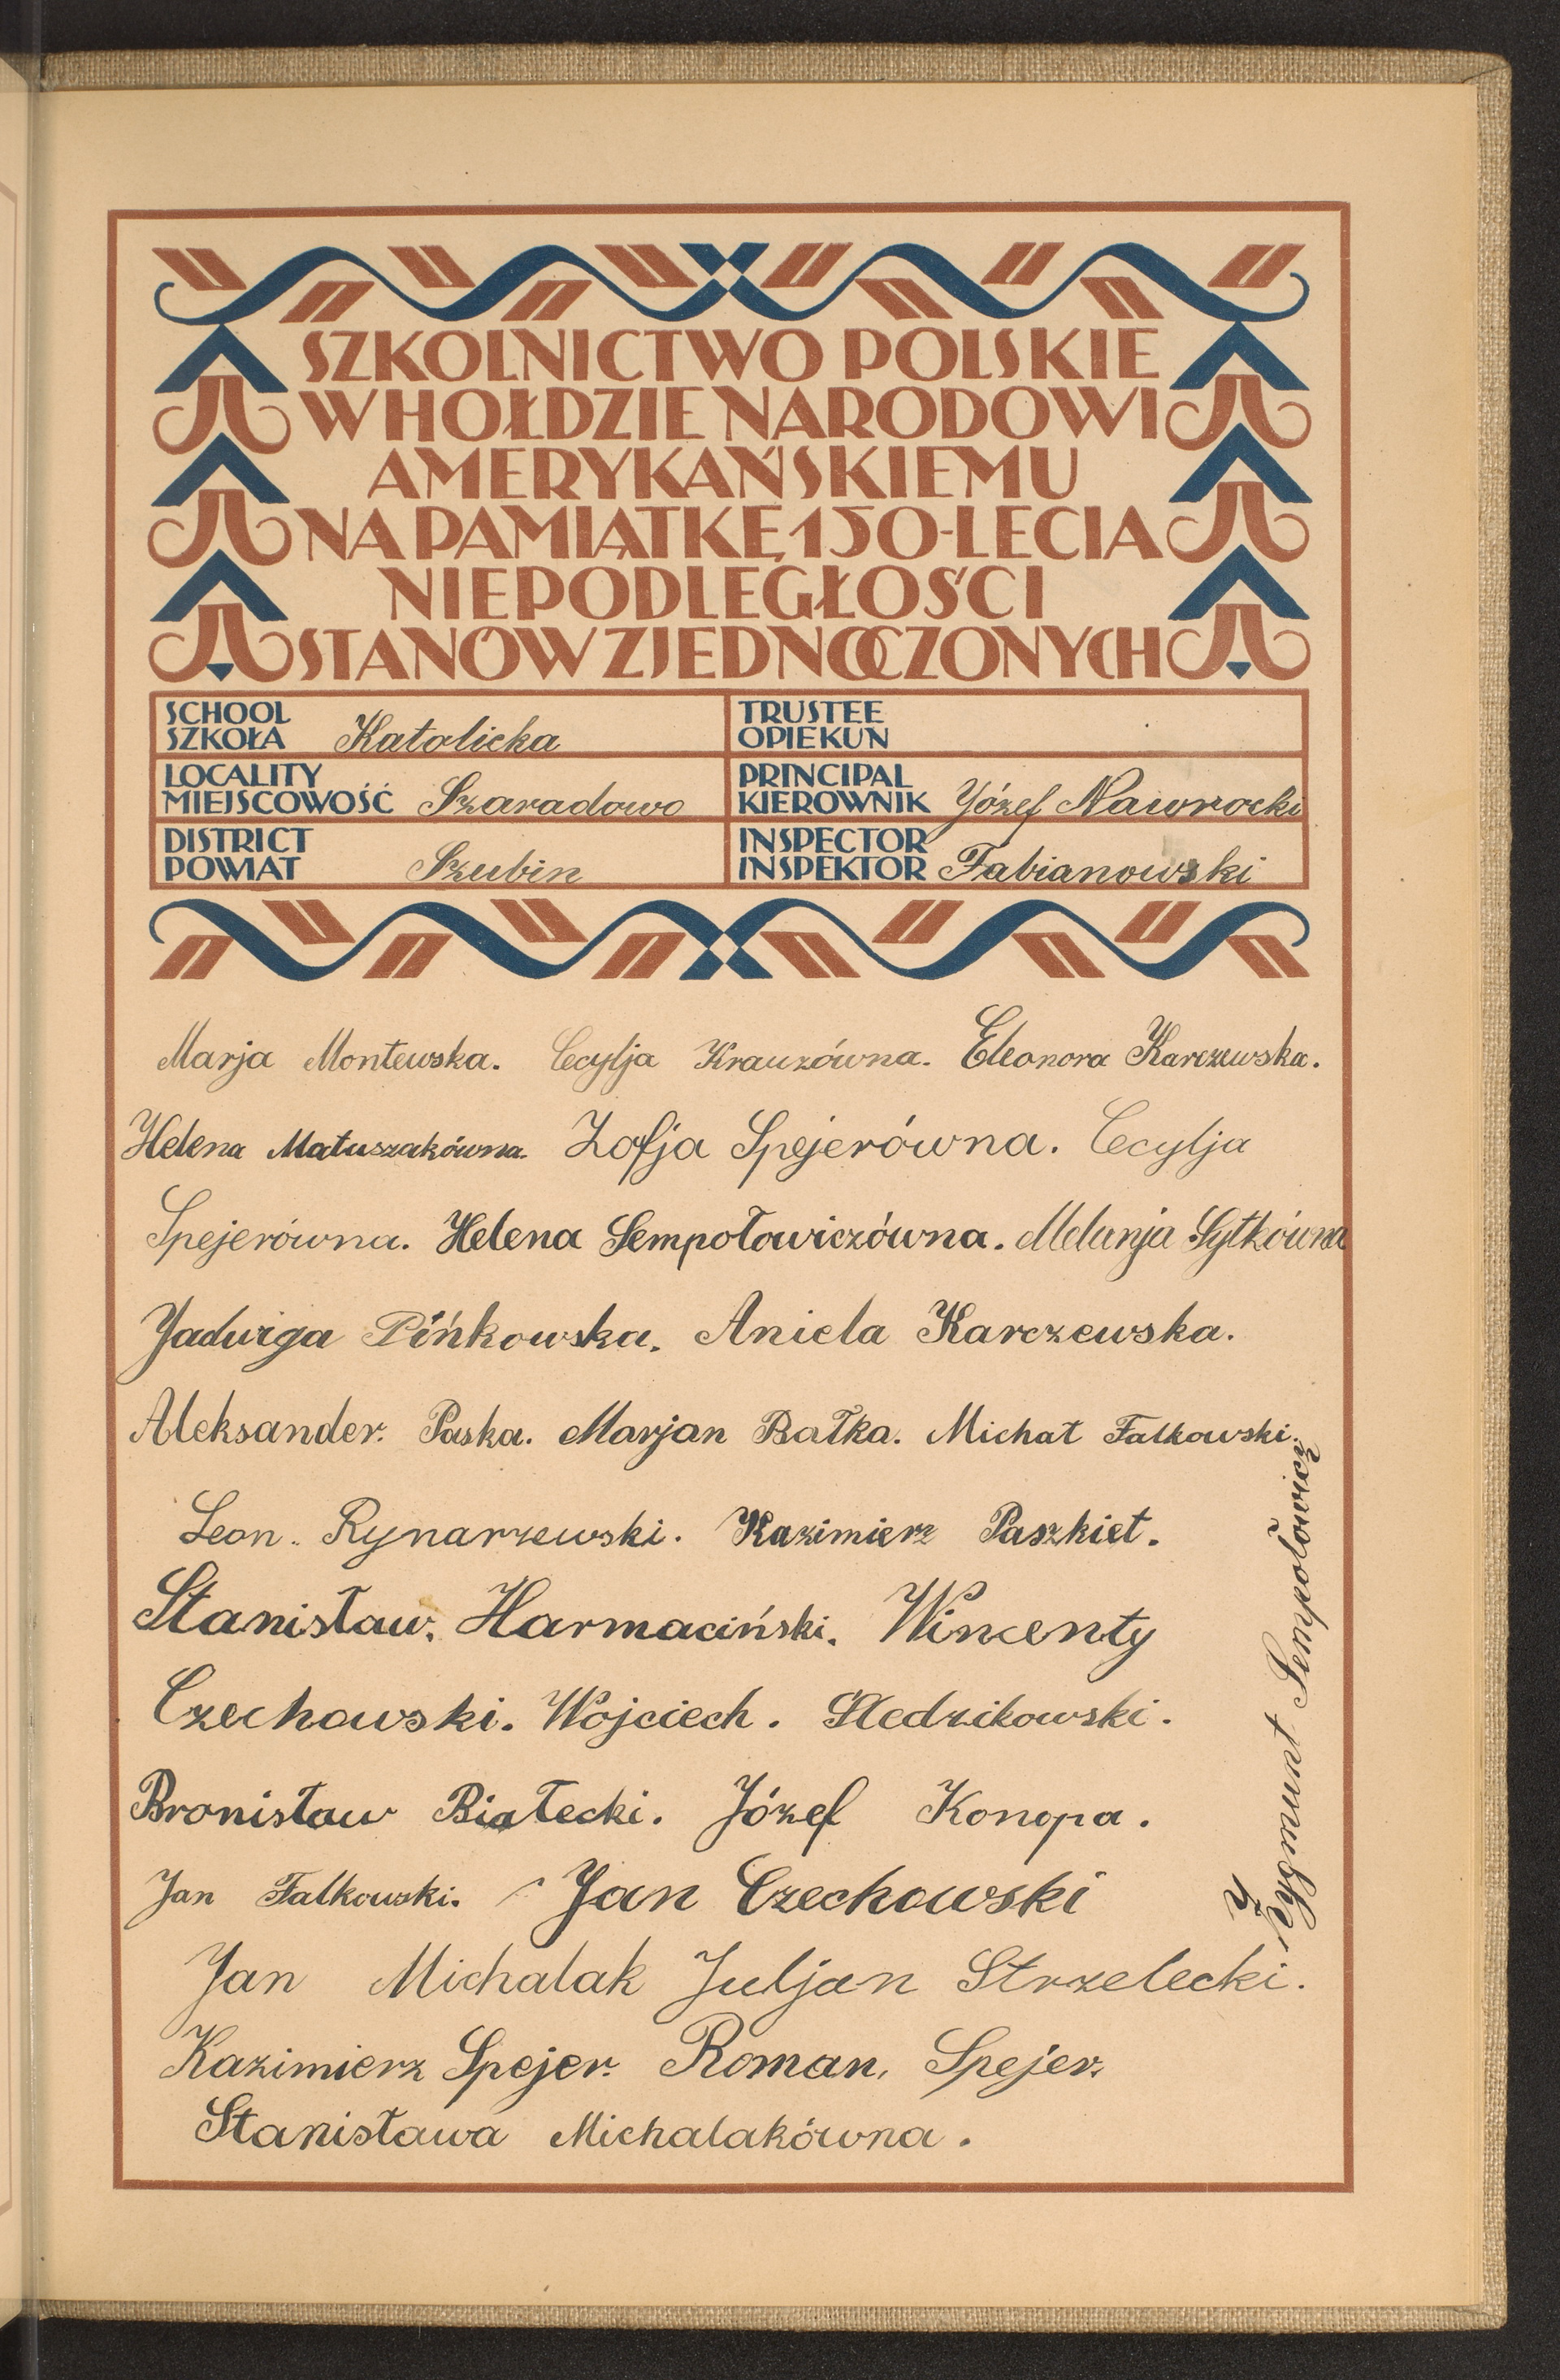 SZKOLNICTWO POLSKIE
W HOŁDZIE NARODOWI
AMERYKAŃSKIEMU
NA PAMIĄTKĘ 150-LECIA
NIEPODLEGŁOŚCI
STANÓW ZJEDNOCZONYCH
SCHOOL
SZKOŁA Katolicka
TRUSTEE
OPIEKUN
LOCALITY
MIEJSCOWOŚĆ Szaradowo
PRINCIPAL
KIEROWNIK Józef Nawrocki
DISTRICT
POWIAT Szubin
INSPECTOR
INSPEKTOR Fabianowski
Marja Montewska. Cecylja Krauzówna. Eleonora Karczewska.
Helena Matuszakówna. Zofja Spejerówna. Cecylja
Spejerówna. Helena Sempołowiczówna. Melanja Sytkówna
Jadwiga Pińkowska. Aniela Karczewska.
Aleksander. Paska. Marjan Bałka. Michał Falkowski.
Leon. Rynarzewski. Kazimierz Paszkiet.
Stanisław. Harmaciński. Wincenty
Czechowski. Wojciech. Śledzikowski.
Bronisław Białecki. Józef Konopa.
Jan Falkowski. Jan Czechowski
Jan Michalak Juljan Strzelecki.
Kazimierz Spejer. Roman. Spejer.
Stanisława Michalakówna.
Zygmunt Sempołowicz